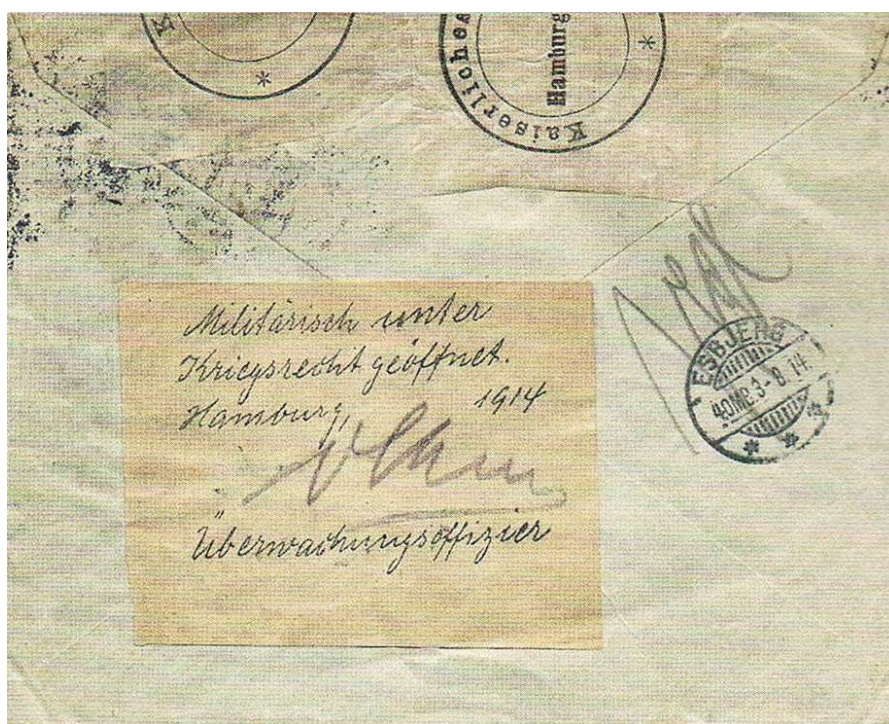 K
Kaiserliches
Hamburg
Militärisch unter
Kriegsrecht geöffnet.
Hamburg, 1914
Überwachungsoffizier
ESBJERG
3-8.14.